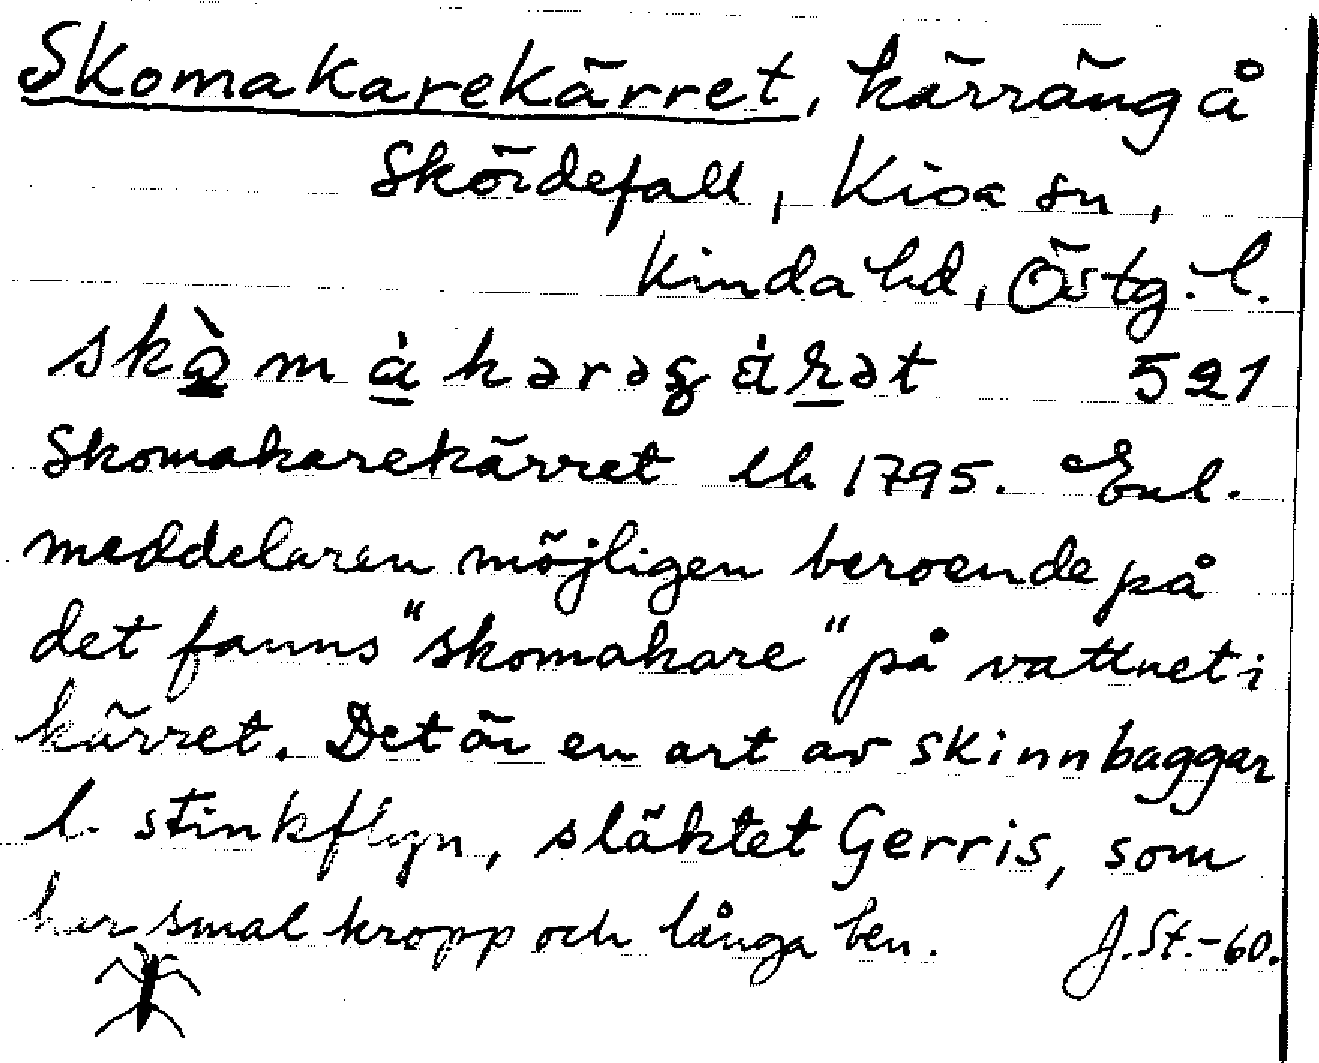 Skomakarekärret, kärräng å
Skördefall, Kisa sn,
Kinda hd, Östg. l.
521
Skomakarekärret lh 1795. Enl.
meddelaren möjligen beroende på
det fanns "skomakare" på vattnet i
kärret. Det är en art av skinnbaggar
l. stinkflyn, släktet Gerris, som
har smal kropp och långa ben. J.St.-60.